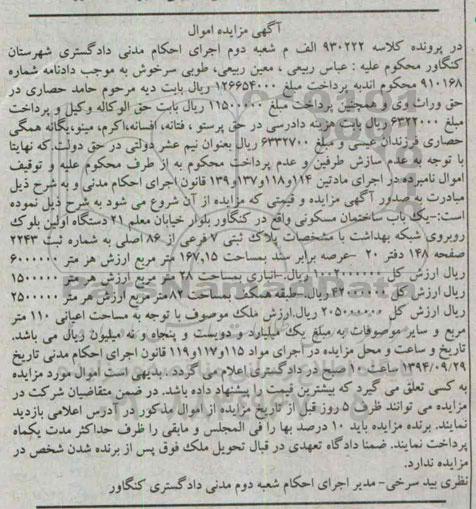 آگهی مزایده اموال
در پرونده کلاسه ۹۳۰۲۲۲ الف م شعبه دوم اجرای احکام مدنی دادگستری شهرستان
کنگاور محکوم علیه : عباس ربیعی ، معین ربیعی، طوبی سرخوش به موجب دادنامه شماره
۹۱۰۱۶۸ محکوم اندبه پرداخت مبلغ ۱۲۶۶۵۴۰۰۰ ریال بابت دیه مرحوم حامد حصاری در
حق وراث وی و همچنین پرداخت مبلغ ۱۱۵۰۰۰۰۰ ریال بابت حق الوکاله وکیل و پرداخت
مبلغ ۶۳۲۲۰۰۰ ریال بابت هزینه دادرسی در حق پرستو ، فتانه، افسانه،اکرم، مینو،یگانه همگی
حصاری فرزندان عیسی و مبلغ ۶۳۳۲۷۰۰ ریال بعنوان نیم عشر دولتی در حق دولت.که نهایتا
با توجه به عدم سازش طرفین و عدم پرداخت محکوم به از طرف محکوم علیه و توقیف
اموال نامبرده.در اجرای مادتین ۱۱۴و۱۱۸و۱۳۷و۱۳۹ قانون اجرای احکام مدنی و به شرح ذیل
مبادرت به صدور آگهی مزایده و قیمتی که مزایده از آن شروع می شود به شرح ذیل نموده
است:-یک باب ساختمان مسکونی واقع در کنگاور بلوار خیابان معلم ۲۱ دستگاه اولین بلوک
روبروی شبکه بهداشت با مشخصات پلاک ثبتی ۷ فرعی از ۸۶ اصلی به شماره ثبت ۲۲۴۳
صفحه ۱۴۸ دفتر ۲۰ -عرصه برابر سند بمساحت ۱۶۷،۱۵ متر مربع ارزش هز متر ۶۰۰۰۰۰۰
ریال ارزش کل ۱۰۰۲۰۰۰۰۰۰ ریال.-انباری بمساحت ۲۸ متر مربع ارزش هر متر ۱۵۰۰۰۰۰
ریال ارزش کل ۴۲۰۰۰۰۰۰ ریال-طبقه همکف بمساحت ۸۲متر مربع ارزش هر متر ۲۵۰۰۰۰۰
ریال ارزش کل ۲۰۵۰۰۰۰۰۰ ریال.ارزش ملک موصوف با توجه به مساحت اعیانی ۱۱۰ متر
مربع و سایر موصوفات به مبلغ یک میلیارد و دویست و پنجاه و نه میلیون ریال می باشد.
تاریخ و ساعت و محل مزایده در اجرای مواد ۱۱۵و۱۱۷و۱۱۹ قانون اجرای احکام مدنی تاریخ
۱۳۹۴/۰۹/۲۹ ساعت ۱۰ صبح در دادگستری اعلام می گردد . بدیهی است اموال مورد مزایده
به کسی تعلق می گیرد که بیشترین قیمت را پیشنهاد داده باشد. در ضمن متقاضیان شرکت در
مزایده می توانند ظرف ۵ روز قبل از تاریخ مزایده از اموال مذکور در آدرس اعلامی بازدید
نمایند. برنده مزایده باید ۱۰ درصد بها را فی المجلس و مابقی را ظرف حداکثر مدت یکماه
پرداخت نمایند. ضمنا دادگاه تعهدی در قبال تحویل ملک فوق پس از برنده شدن شخص در
مزایده ندارد.
نظری بید سرخی- مدیر اجرای احکام شعبه دوم مدنی دادگستری کنگاور